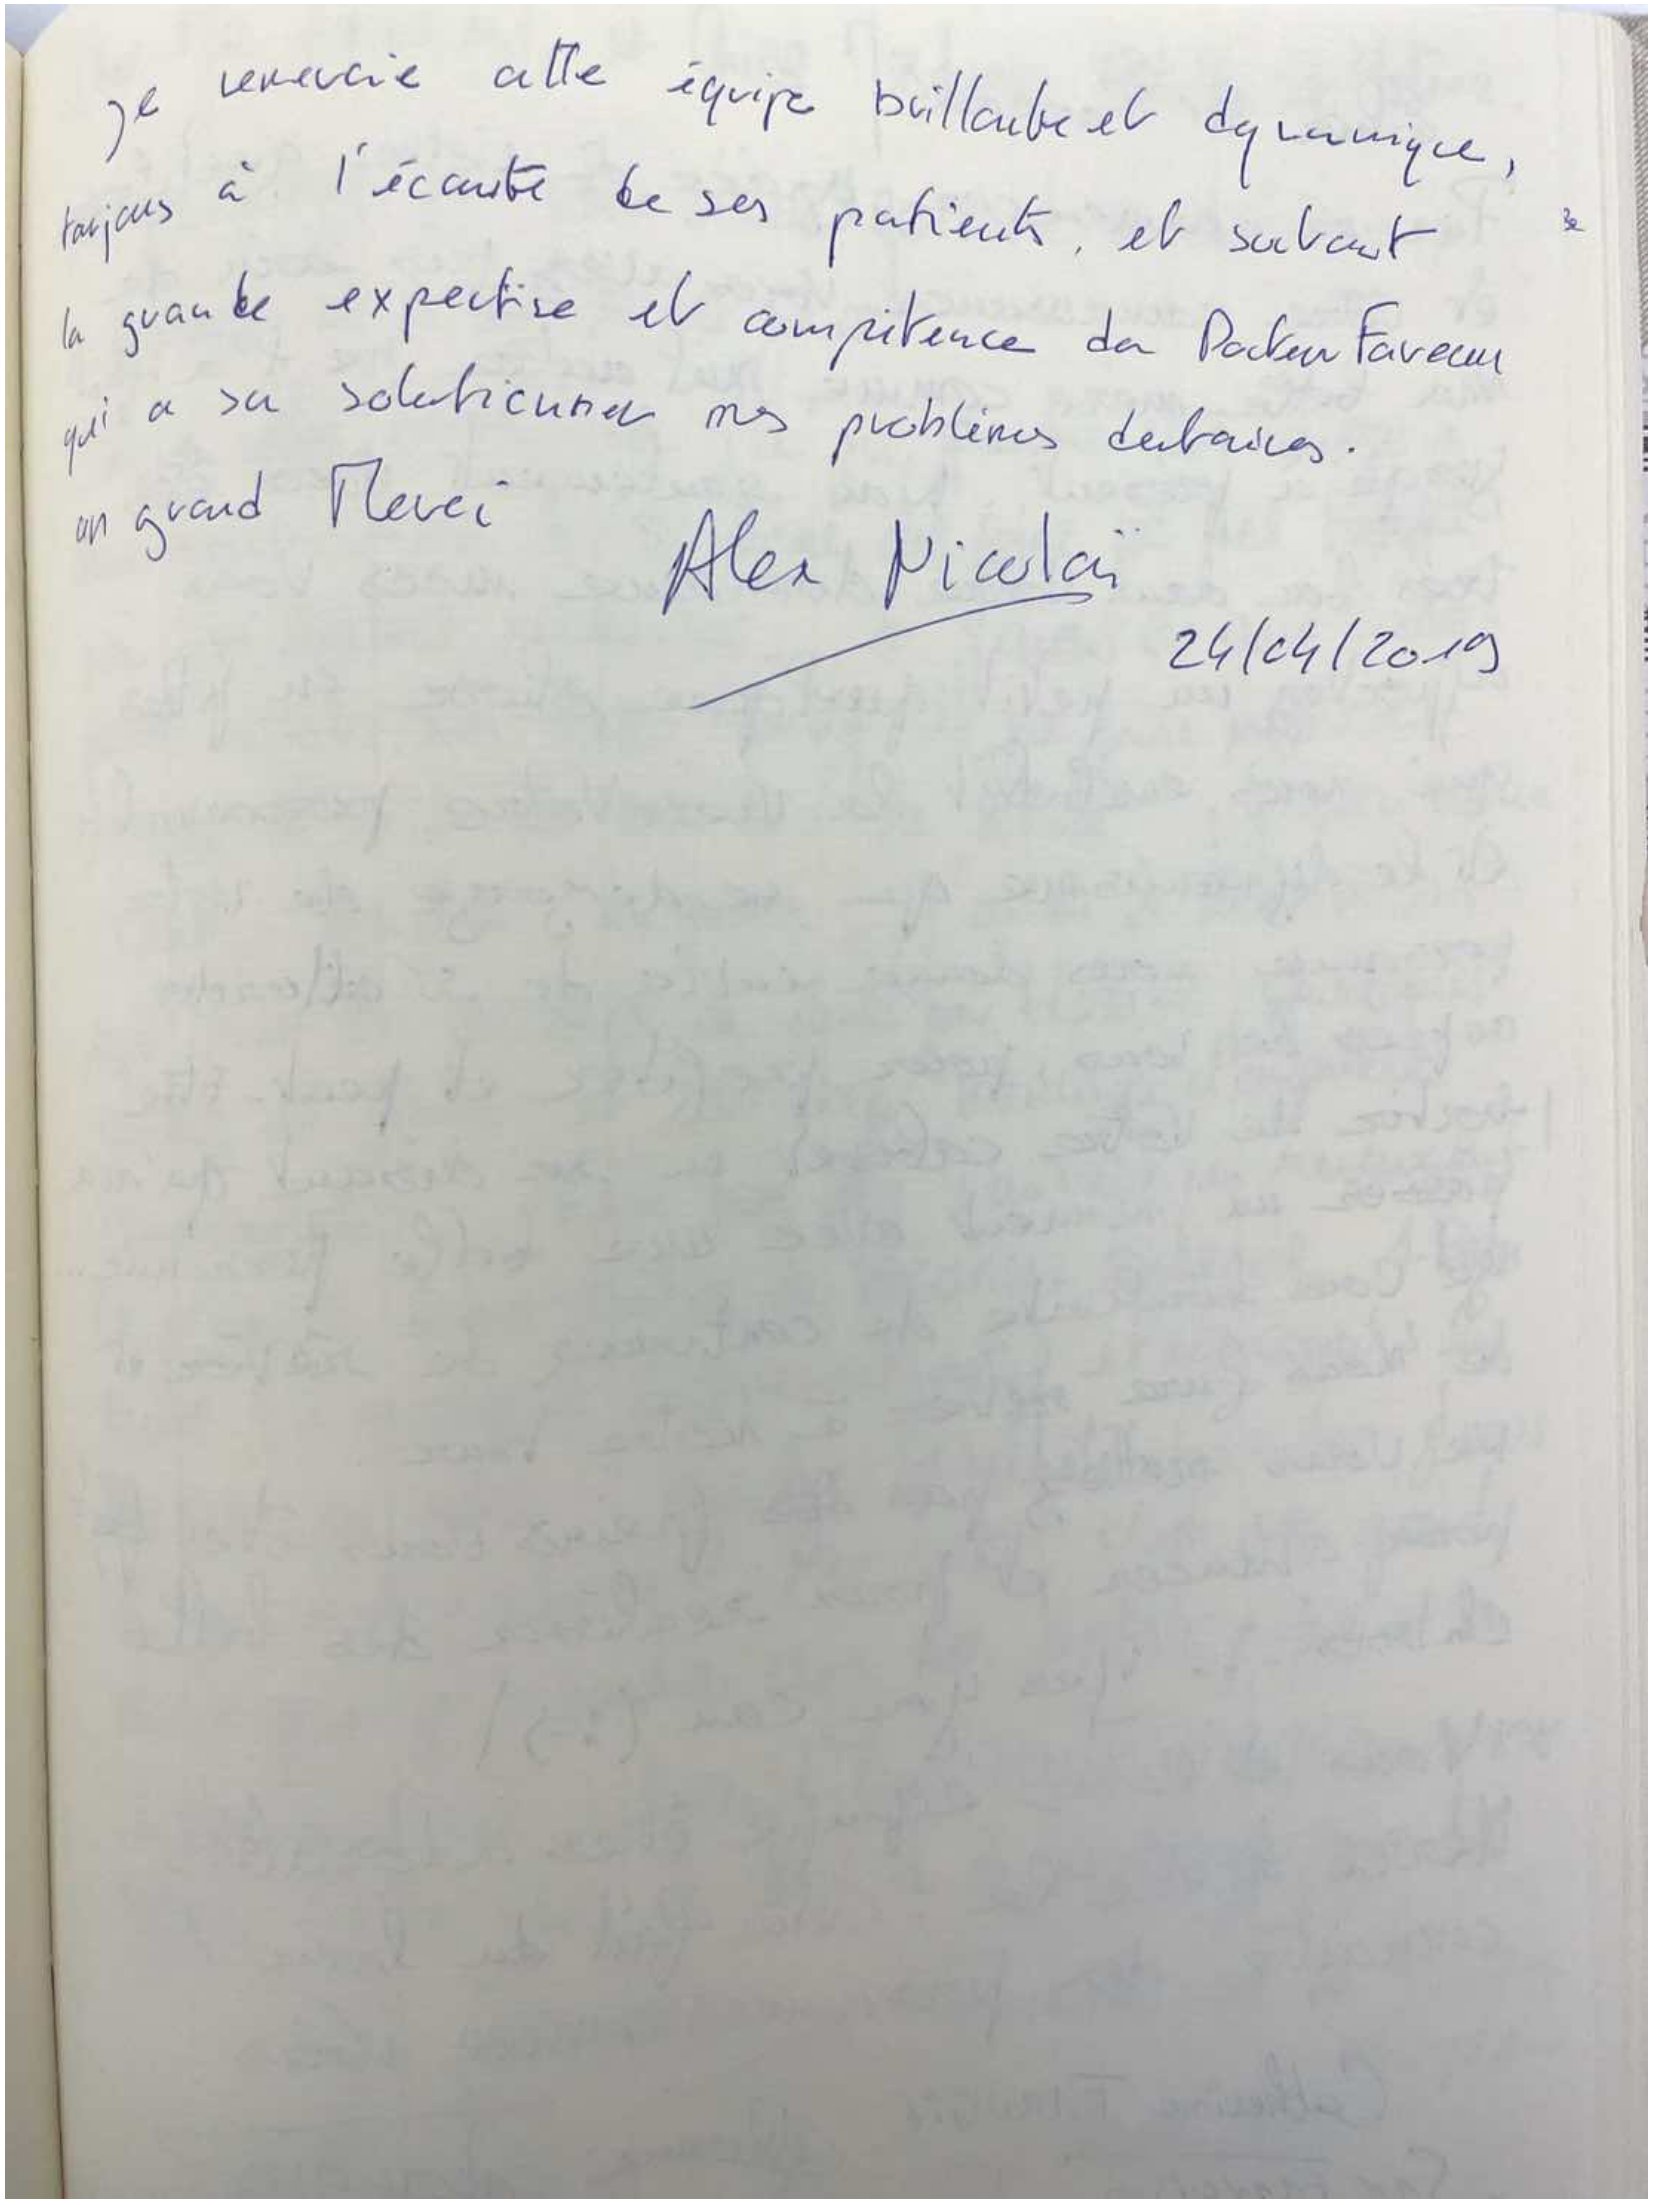 je remercie cette équipe brillante et dynamique,
toujours à l'écoute de ses patients, et surtout
la grande expertise et compétence du Docteur Faveau
qui a su solutionner mes problèmes dentaires.
un grand Merci
Alex Nicolaï
24/04/2019